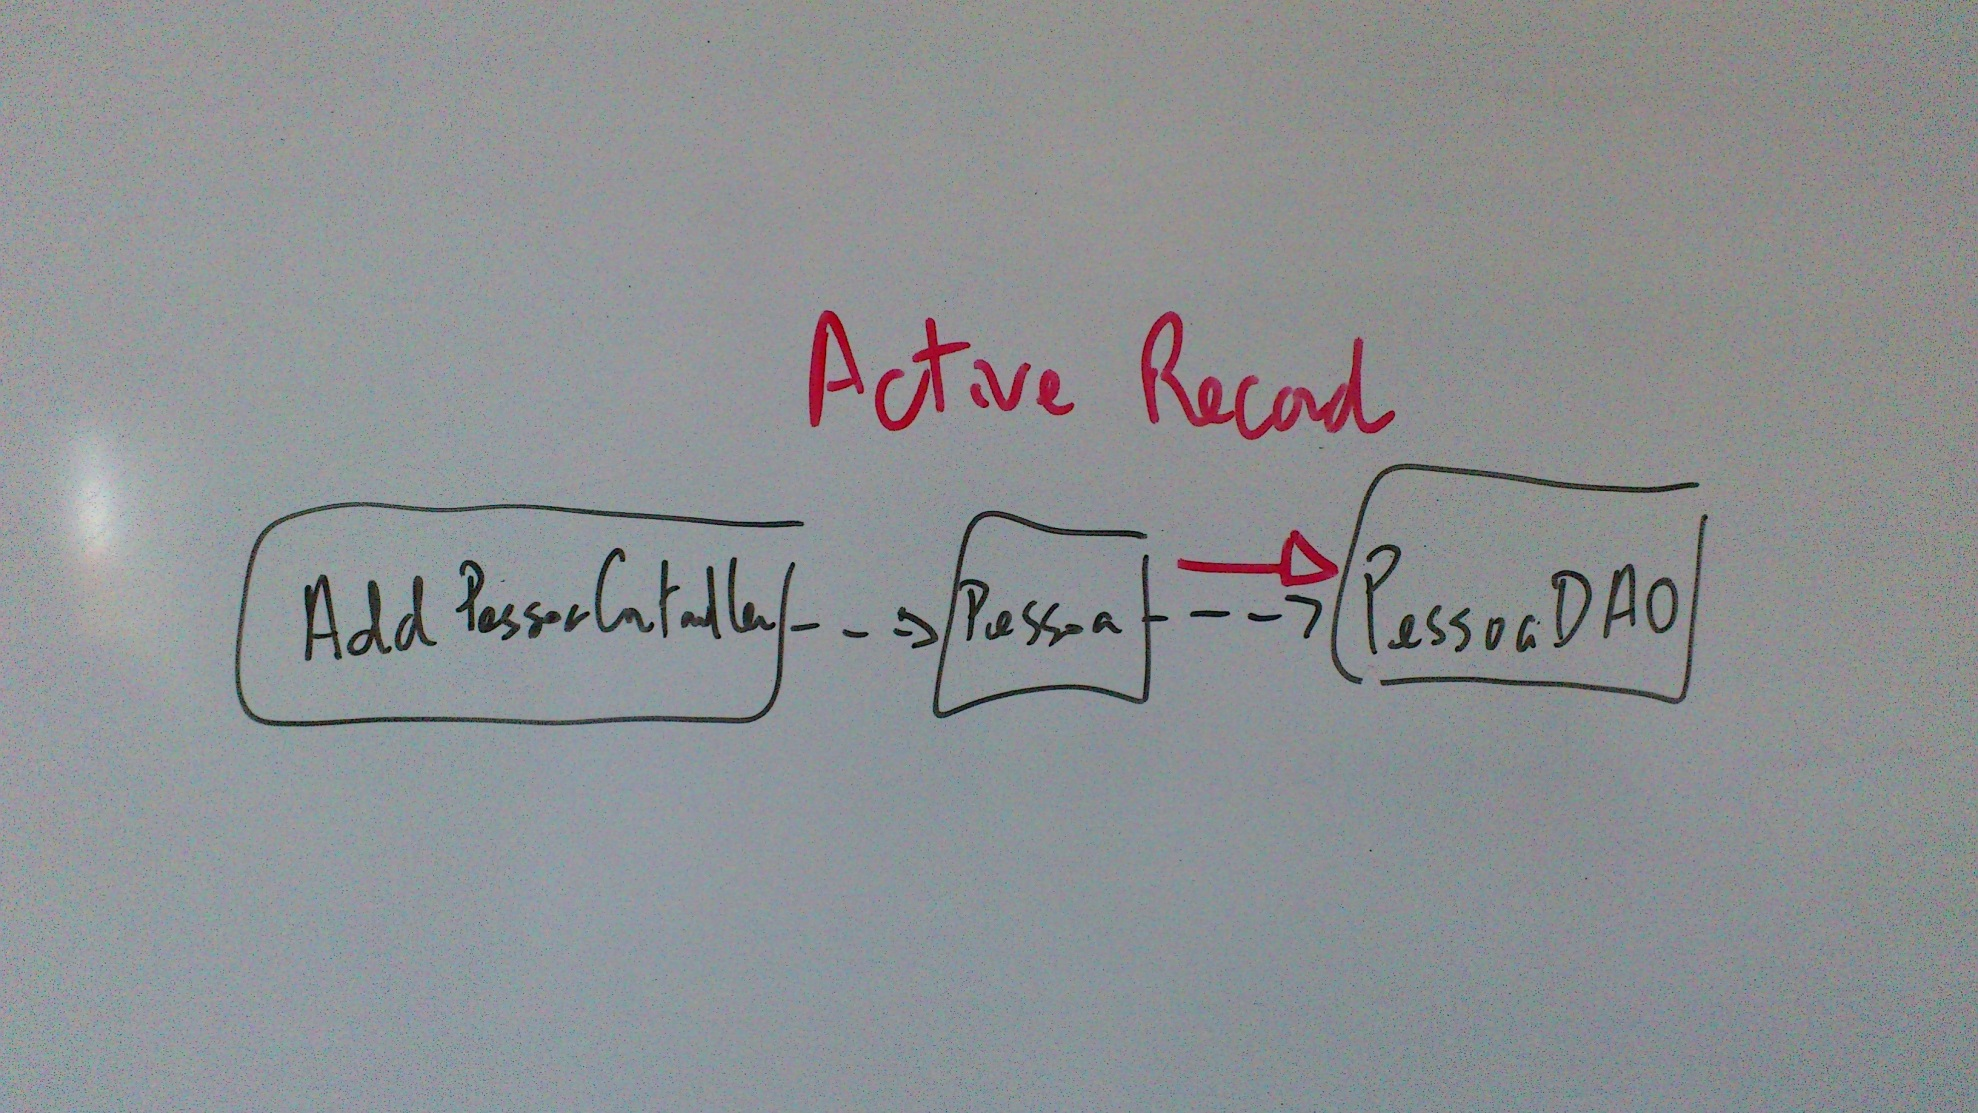 Active Record
AddPessoaController Pessoa PessoaDAO